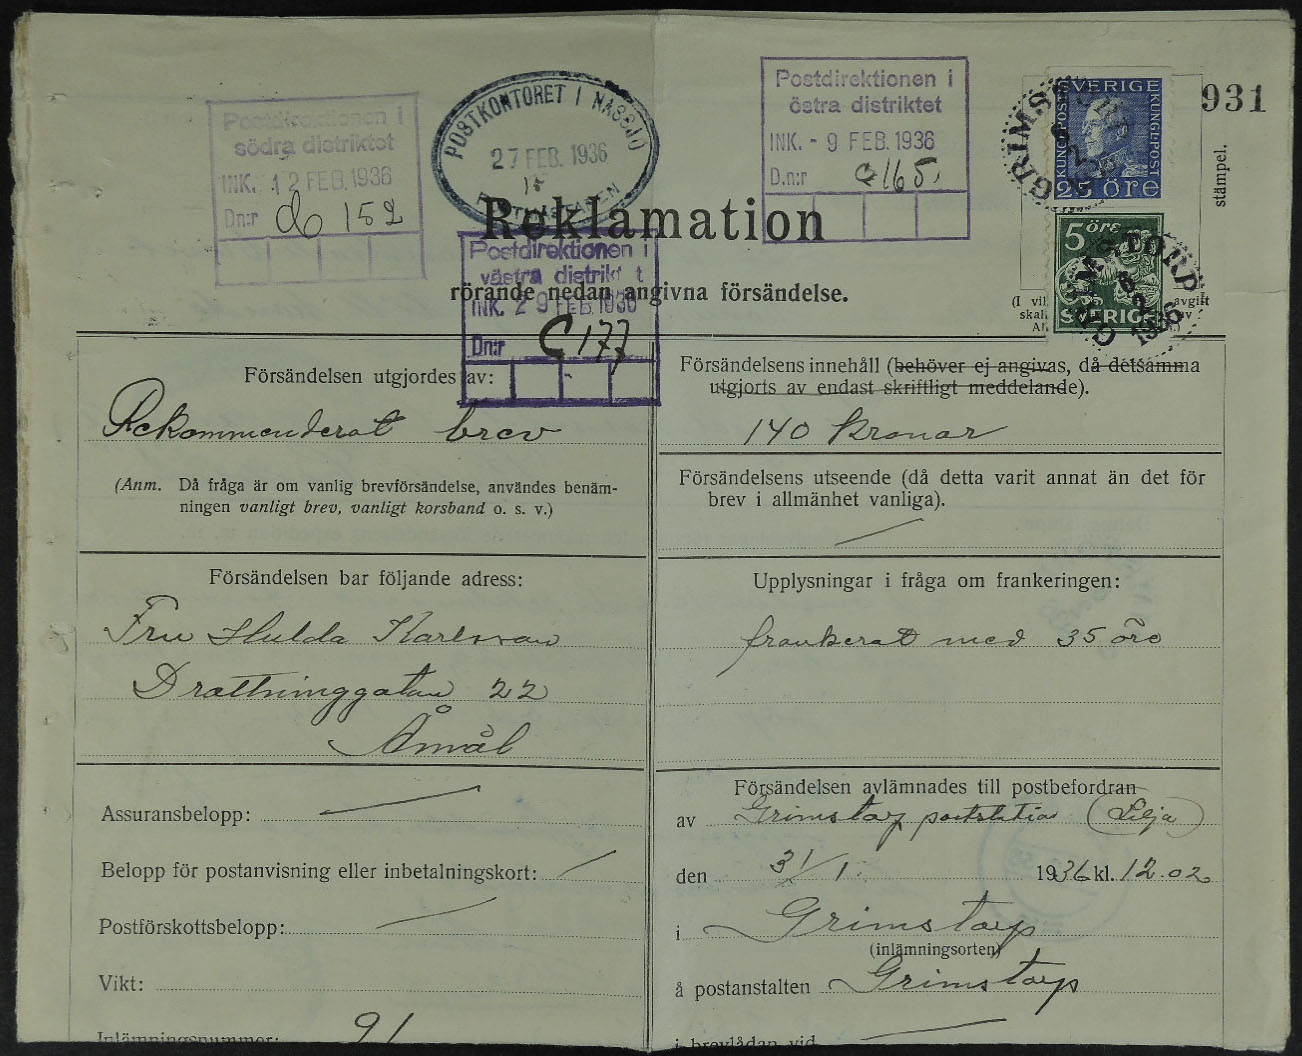 Postdirektionen i
södra distriktet
INK. 12 FEB. 1936
Dn:r do 152
POSTKONTORET I NÄSSJÖ
27 FEB. 1936
Postdirektionen i
östra distriktet
INK. - 9 FEB 1936
D.n:r a 165.
931
SVERIGE
KUNGL. POST
KUNGL. POST
25 öre
GRIMSTORP
stämpel.
5 öre
SVERIGE
GRIMSTORP
6
2
1936
Reklamation
Postdirektionen i
västra distriktet
INK. 29 FEB 1936
Dn:r C 177
rörande nedan angivna försändelse.
(I vil
skal
avgift
Försändelsen utgjordes av:
Rekommenderat brev
(Anm. Då fråga är om vanlig brevförsändelse, användes benäm-
ningen vanligt brev, vanligt korsband o. s. v.)
Försändelsens innehåll (behöver ej angivas, då detsamma
utgjorts av endast skriftligt meddelande).
140 kronor
Försändelsens utseende (då detta varit annat än det för
brev i allmänhet vanliga).
Försändelsen bar följande adress:
Fru Hulda Karlsson
Drottninggatan 22
Åmål
Upplysningar i fråga om frankeringen:
frankerat med 35 öre
Assuransbelopp:
Belopp för postanvisning eller inbetalningskort:
Postförskottsbelopp:
Vikt:
Inlämningsnummer: 91
Försändelsen avlämnades till postbefordran
av Grimstorp poststation (Lilja)
den 31/1 1936 kl. 12.02
i Grimstorp
(inlämningsorten)
å postanstalten Grimstorp
i brevlådan vid